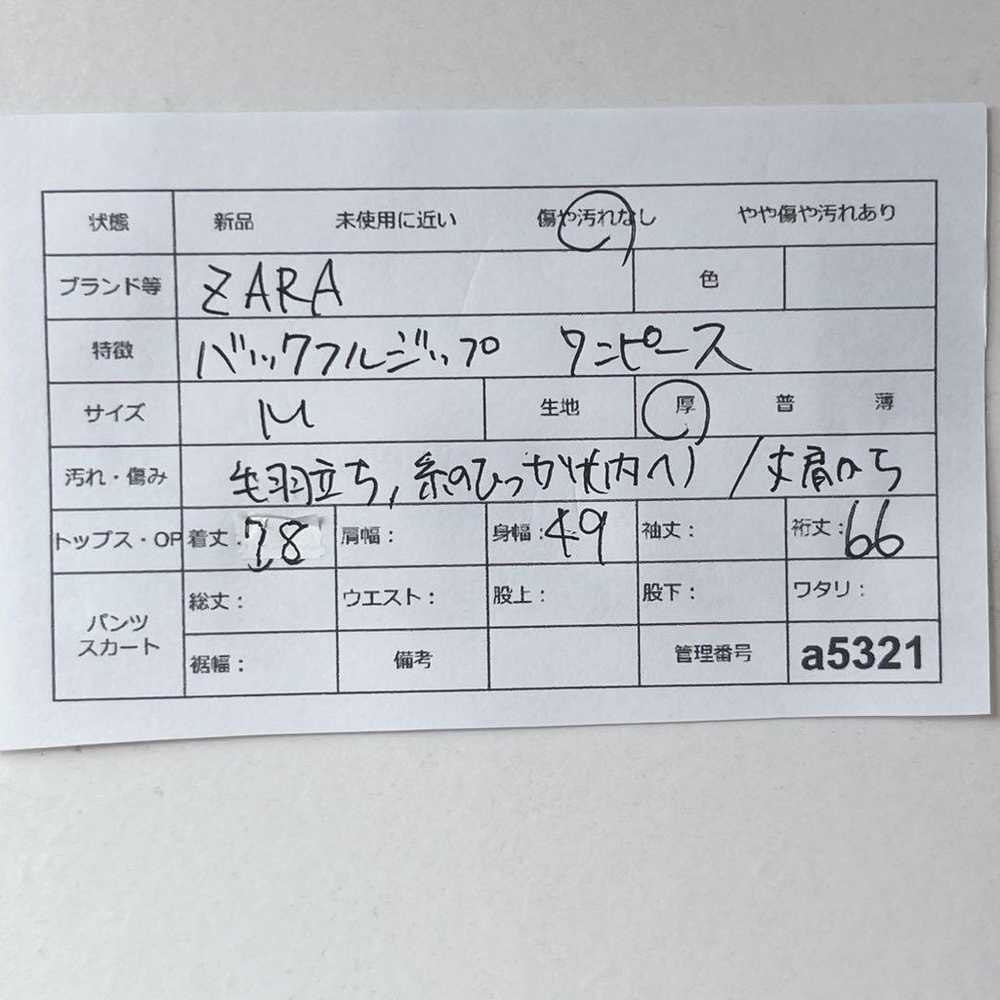 状態 新品 未使用に近い 傷や汚れなし やや傷や汚れあり
ブランド等 ZARA 色
特徴 バックフルジップ ワンピース
サイズ M 生地 厚 普 薄
汚れ・傷み 毛羽立ち, 糸のひっかけ(内へ) /丈肩から
トップス・OP 着丈:78 肩幅: 身幅:49 袖丈: 裄丈:66
パンツ スカート 総丈: ウエスト: 股上: 股下: ワタリ:
裾幅: 備考 管理番号 a5321